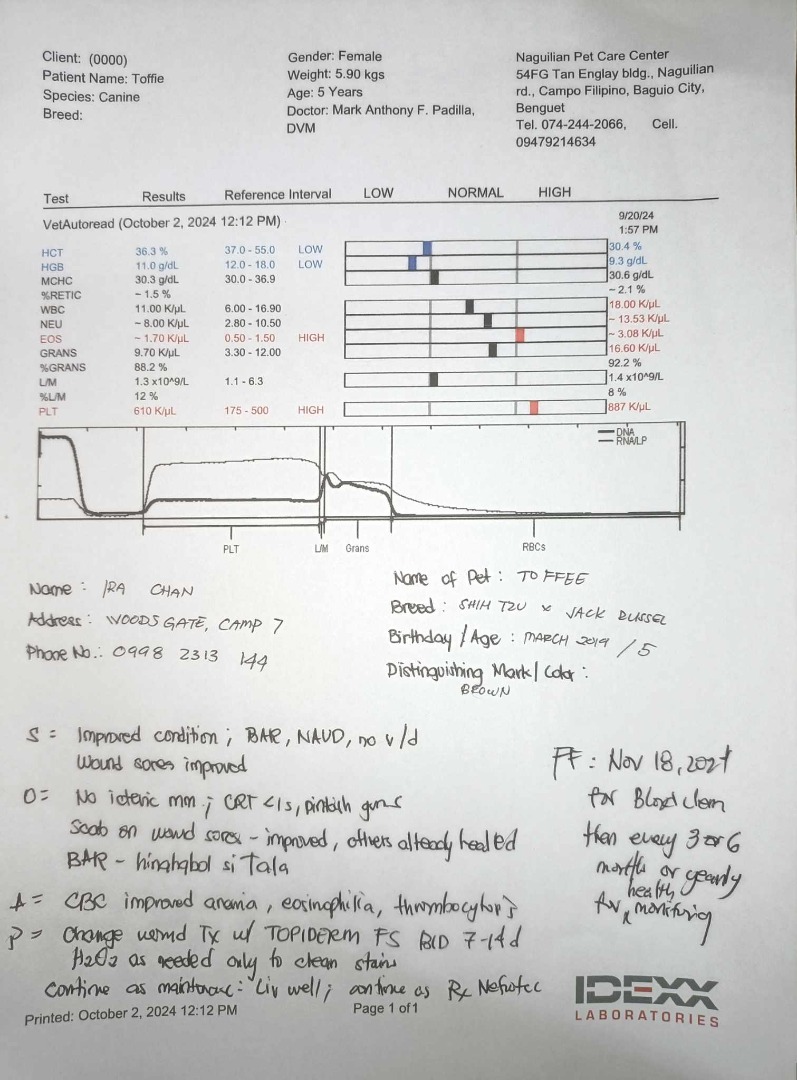 Client: (0000)
Patient Name: Toffie
Species: Canine
Breed:
Gender: Female
Weight: 5.90 kgs
Age: 5 Years
Doctor: Mark Anthony F. Padilla,
DVM
Naguilian Pet Care Center
54FG Tan Englay bldg., Naguilian
rd., Campo Filipino, Baguio City,
Benguet
Tel. 074-244-2066, Cell.
09479214634
Test Results Reference Interval LOW NORMAL HIGH
VetAutoread (October 2, 2024 12:12 PM)
9/20/24
1:57 PM
HCT 36.3 % 37.0 - 55.0 LOW 30.4 %
HGB 11.0 g/dL 12.0 - 18.0 LOW 9.3 g/dL
MCHC 30.3 g/dL 30.0 - 36.9 30.6 g/dL
%RETIC ~ 1.5 % ~ 2.1 %
WBC 11.00 K/µL 6.00 - 16.90 18.00 K/µL
NEU ~ 8.00 K/µL 2.80 - 10.50 ~ 13.53 K/µL
EOS ~ 1.70 K/µL 0.50 - 1.50 HIGH ~ 3.08 K/µL
GRANS 9.70 K/µL 3.30 - 12.00 16.60 K/µL
%GRANS 88.2 % 92.2 %
L/M 1.3 x10^9/L 1.1 - 6.3 1.4 x10^9/L
%L/M 12 % 8 %
PLT 610 K/µL 175 - 500 HIGH 887 K/µL
DNA
RNA/LP
PLT L/M Grans RBCs
Name : IRA CHAN
Address : WOODSGATE, CAMP 7
Phone No.: 0998 2313 144
Name of Pet : TOFFEE
Breed : SHIH TZU x JACK RUSSEL
Birthday / Age : MARCH 2019 / 5
Distinguishing Mark / Color :
BROWN
S = Improved condition ; BAR, NAUD, no v/d
Wound sores improved
O = No icteric mm ; CRT <1s, pinkish gums
Scab on wound sores - improved, others already healed
BAR - hinahabol si Tala
A = CBC improved anemia, eosinophilia,
P = Change wound Tx w/ TOPIDERM FS BID 7-14d
H2O2 as needed only to clean stains
Continue as maintenance: Liv well ; continue as Rx Nefrotec
FF : Nov 18, 2024
for Blood chem
then every 3 or 6
months or yearly
health
monitoring
Printed: October 2, 2024 12:12 PM
Page 1 of 1
IDEXX
LABORATORIES